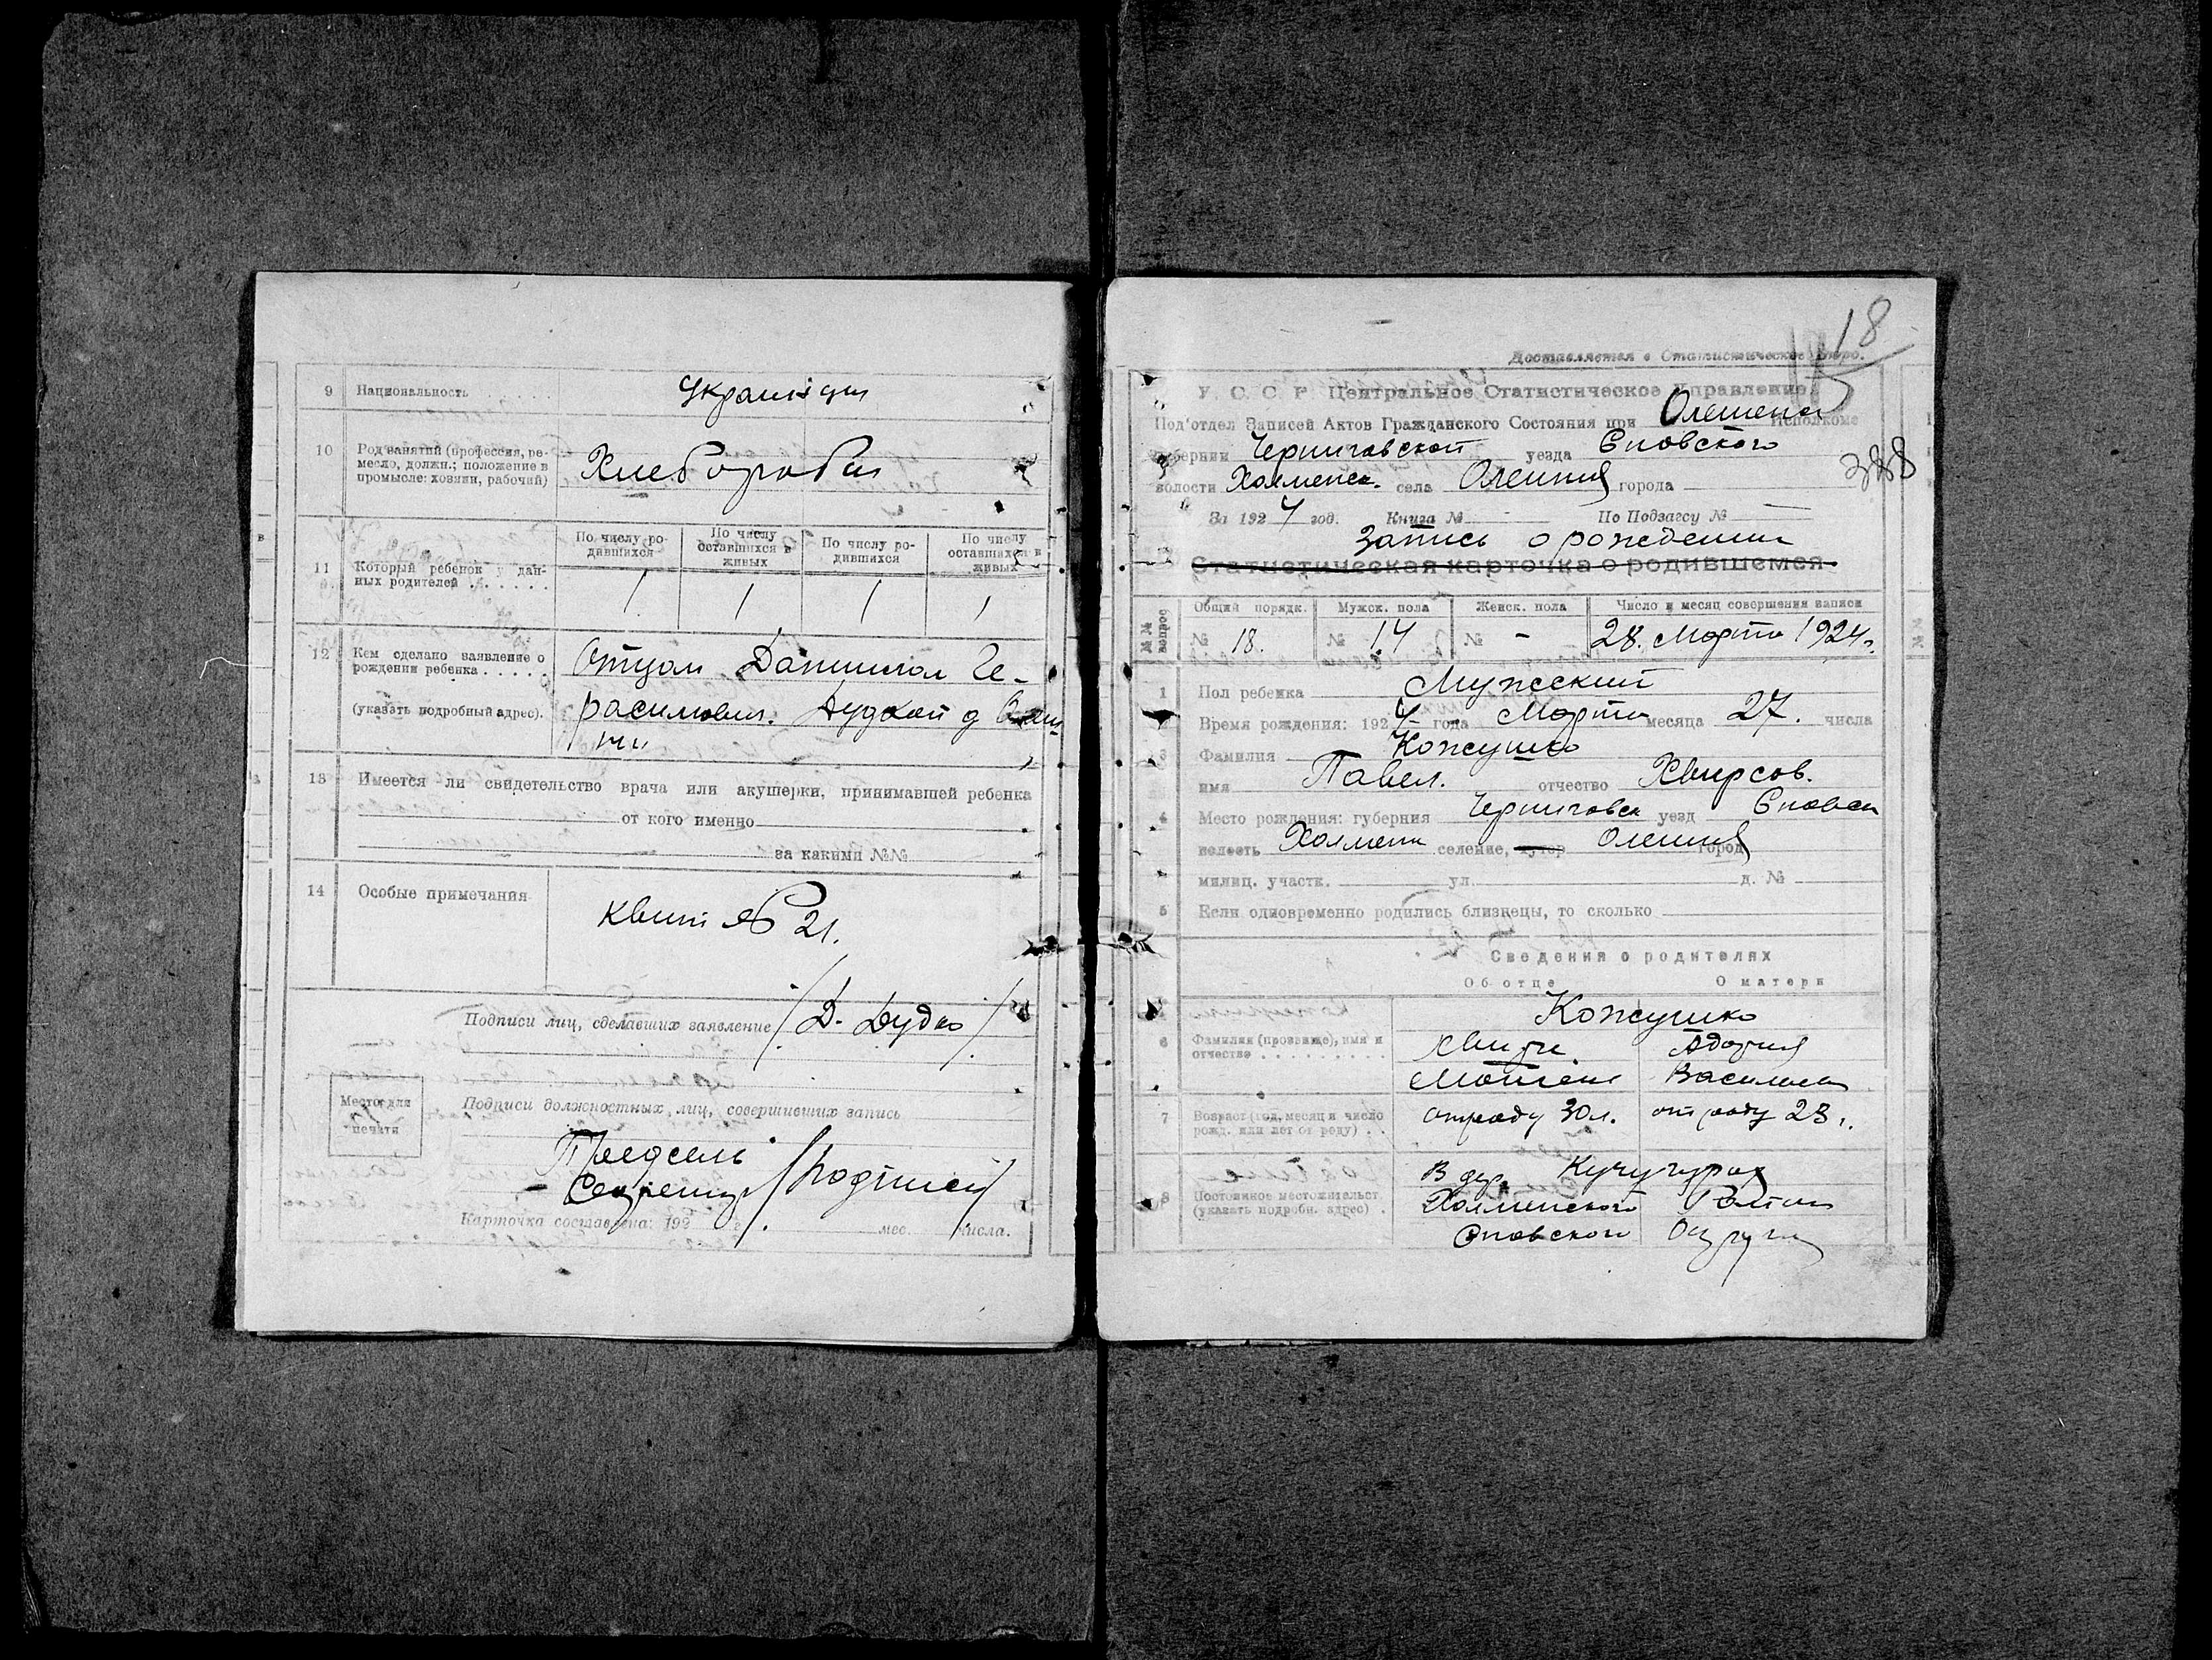 9 Национальность . . . . Украинцы
10 Род занятий (профессия, ре-
месло, должн.; положение в
промысле: хозяин, рабочий)
Хлеборобы
По числу ро-
дившихся
По числу
оставшихся в
живых
По числу ро-
дившихся
По числу
оставшихся в
живых
11 Который ребенок у дан-
ных родителей . . . . . .
1 1 1 1
12 Кем сделано заявление о
рождении ребенка . . . . .
(указать подробный адрес).
Отцом Даниилом Ге-
расимович. Дудкой д
13 Имеется ли свидетельство врача или акушерки, принимавшей ребенка
от кого именно
за какими №№
14 Особые примечания
Квит № 21.
Подписи лиц, сделавших заявление /Д. Дудко/
Место для
печати
Подписи должностных лиц, совершивших запись
Предсель
Секретарь /подписи/
Карточка составлена: 192 г. мес. числа.
18
Доставляется в Статистическое Бюро.
У. С. С. Р. Центральное Статистическое Управление
Под'отдел Записей Актов Гражданского Состояния при Исполкоме
Губернии Черниговской уезда Сновского
388
волости Холменск. села города
За 1924 год. Книга № По Подзагсу №
Запись о рождении
Статистическая карточка о родившемся
№№ вопрос
Общий порядк. Мужск. пола Женск. пола Число и месяц совершения записи
№ 18. № 14 № - 28. Марта 1924 г.
1 Пол ребенка Мужеский
Время рождения: 1924 года Марта месяца 27. числа
3 Фамилия Кожушко
имя Павел. отчество Хвирсов.
4 Место рождения: губерния Черниговск уезд Сновск
волость Холменск селение, хутор город
милиц. участк. ул. д. №
5 Если одновременно родились близнецы, то сколько
Сведения о родителях
Об отце О матери
Кожушко
6 Фамилия (прозвище), имя и
отчество . . . . . . . . . .
Василиев
7 Возраст (год, месяц и число
рожд. или лет от роду) . .
от роду 30 л. от роду 23 г.
8 Постоянное местожительст.
(указать подробн. адрес) .
В дер. Кучугурах
Холменского Района
Сновского Округа